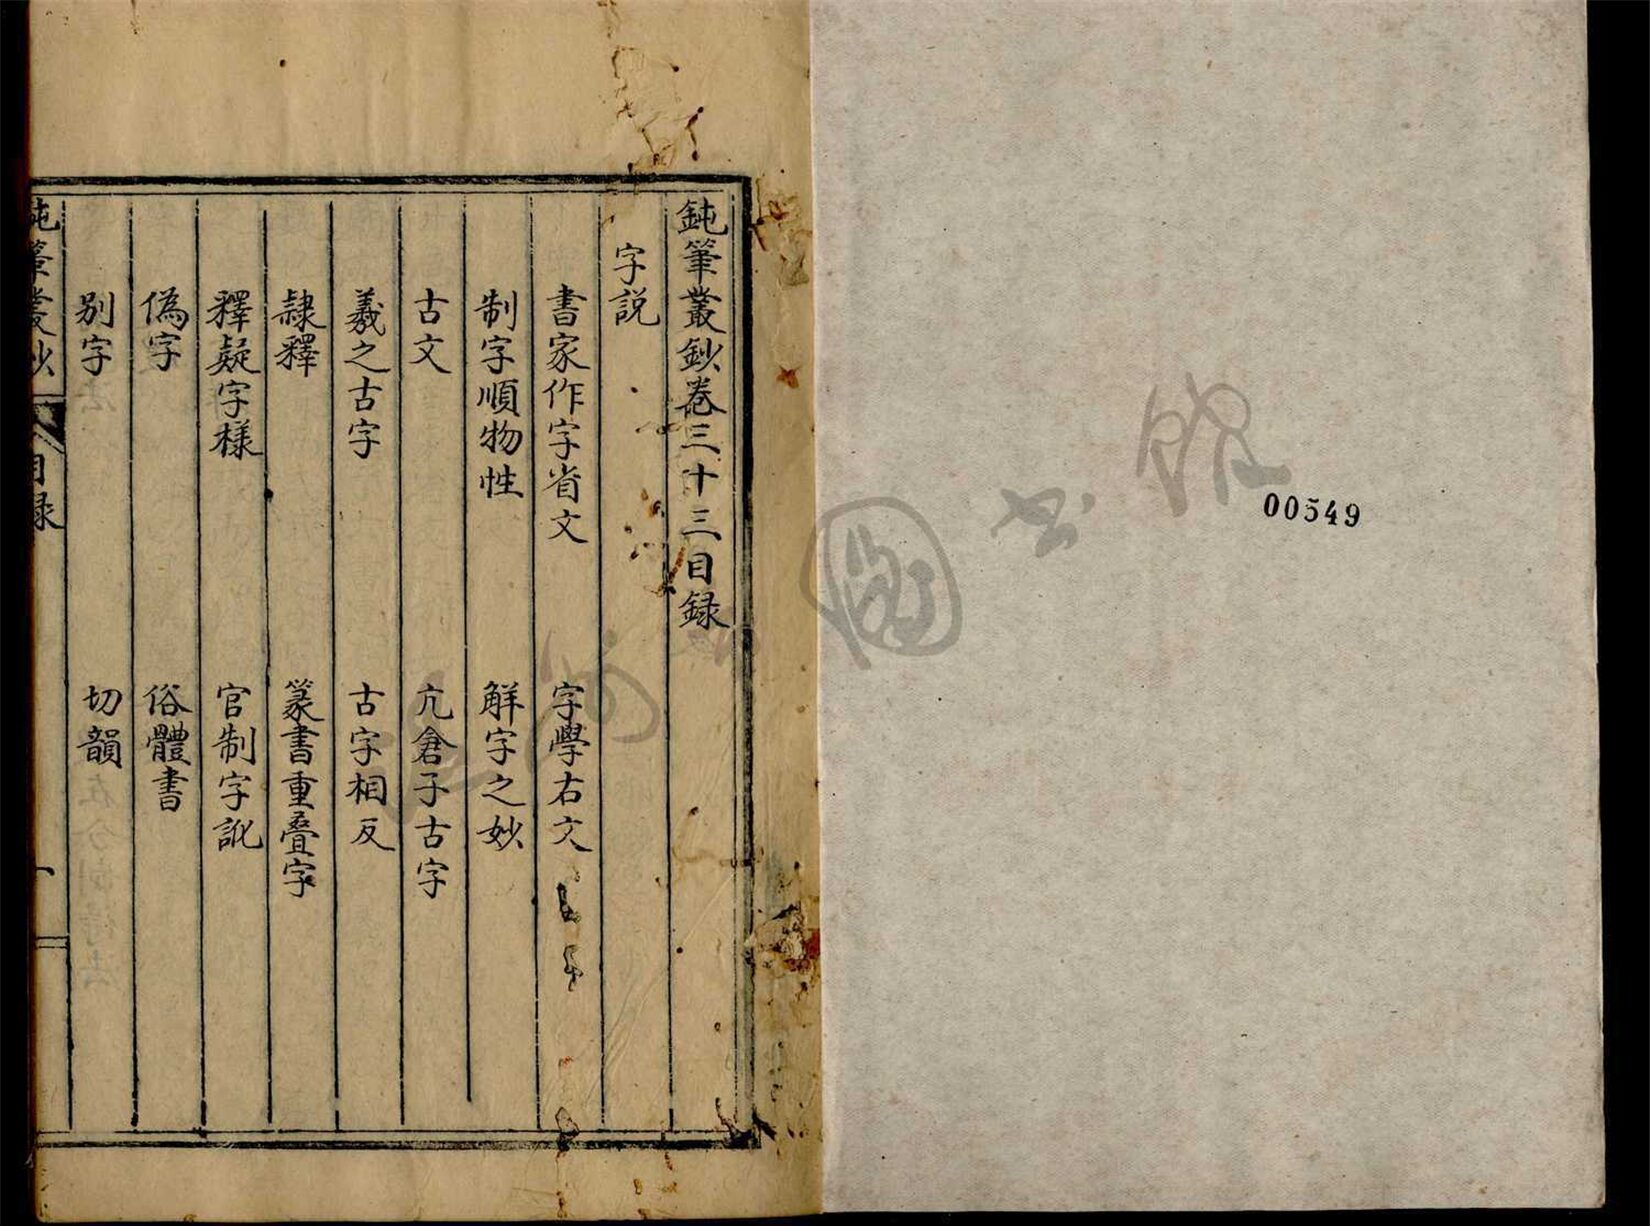 鈍筆叢鈔卷三十三目録
字説
書家作字省文　字學右文
制字順物性　解字之妙
古文　亢倉子古字
羲之古字　古字相反
隸釋　篆書重疊字
釋疑字樣　官制字訛
偽字　俗體書
別字　切韻
鈍筆叢鈔　目録　一
00549